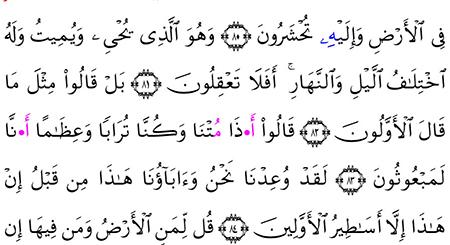 فِي ٱلۡأَرۡضِ وَإِلَيۡهِۦ تُحۡشَرُونَ ۝٨٠ وَهُوَ ٱلَّذِي يُحۡيِۦ وَيُمِيتُ وَلَهُ
ٱخۡتِلَٰفُ ٱلَّيۡلِ وَٱلنَّهَارِۚ أَفَلَا تَعۡقِلُونَ ۝٨١ بَلۡ قَالُواْ مِثۡلَ مَا
قَالَ ٱلۡأَوَّلُونَ ۝٨٢ قَالُواْ أَ•ذَا مُتۡنَا وَكُنَّا تُرَابٗا وَعِظَٰمًا أَ•نَّا
لَمَبۡعُوثُونَ ۝٨٣ لَقَدۡ وُعِدۡنَا نَحۡنُ وَءَابَآؤُنَا هَٰذَا مِن قَبۡلُ إِنۡ
هَٰذَا إِلَّا أَسَٰطِيرُ ٱلۡأَوَّلِينَ ۝٨٤ قُل لِّمَنِ ٱلۡأَرۡضُ وَمَن فِيهَا إِن